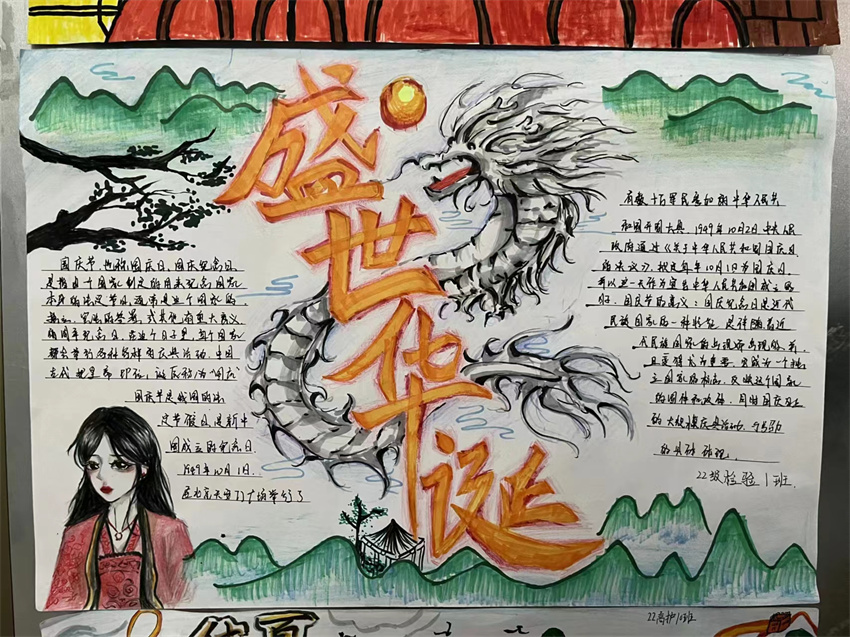 盛世华诞
国庆节,也称国庆日、国庆纪念日,
是指由一个国家制定的用来纪念国家
本身的法定节日,通常是这个国家的
独立、宪法的签署、或其他有重大意义
的周年纪念日,在这个日子里,每个国家
都会举行各种各样的庆典活动,中国
古代把皇帝即位、诞辰称为"国庆"
国庆节是我国的法
定节假日,是新中
国成立的纪念日
1949年10月1日,
在北京天安门广场举行了
有数十万军民参加的中华人民共
和国开国大典,1949年10月2日,中央人民
政府通过《关于中华人民共和国国庆日
的决议》,规定每年10月1日为国庆日,
并以这一天作为宣告中华人民共和国成立的
日子。国庆节的意义:国庆纪念日是近代
民族国家的一种特征,是伴随着近
代民族国家的出现而出现的,并
且变得尤为重要,它成为一个独
立国家的标志,反映这个国家
的国体和政体,
的大规模庆典活动,
22级检验1班.
22高护1班
华夏